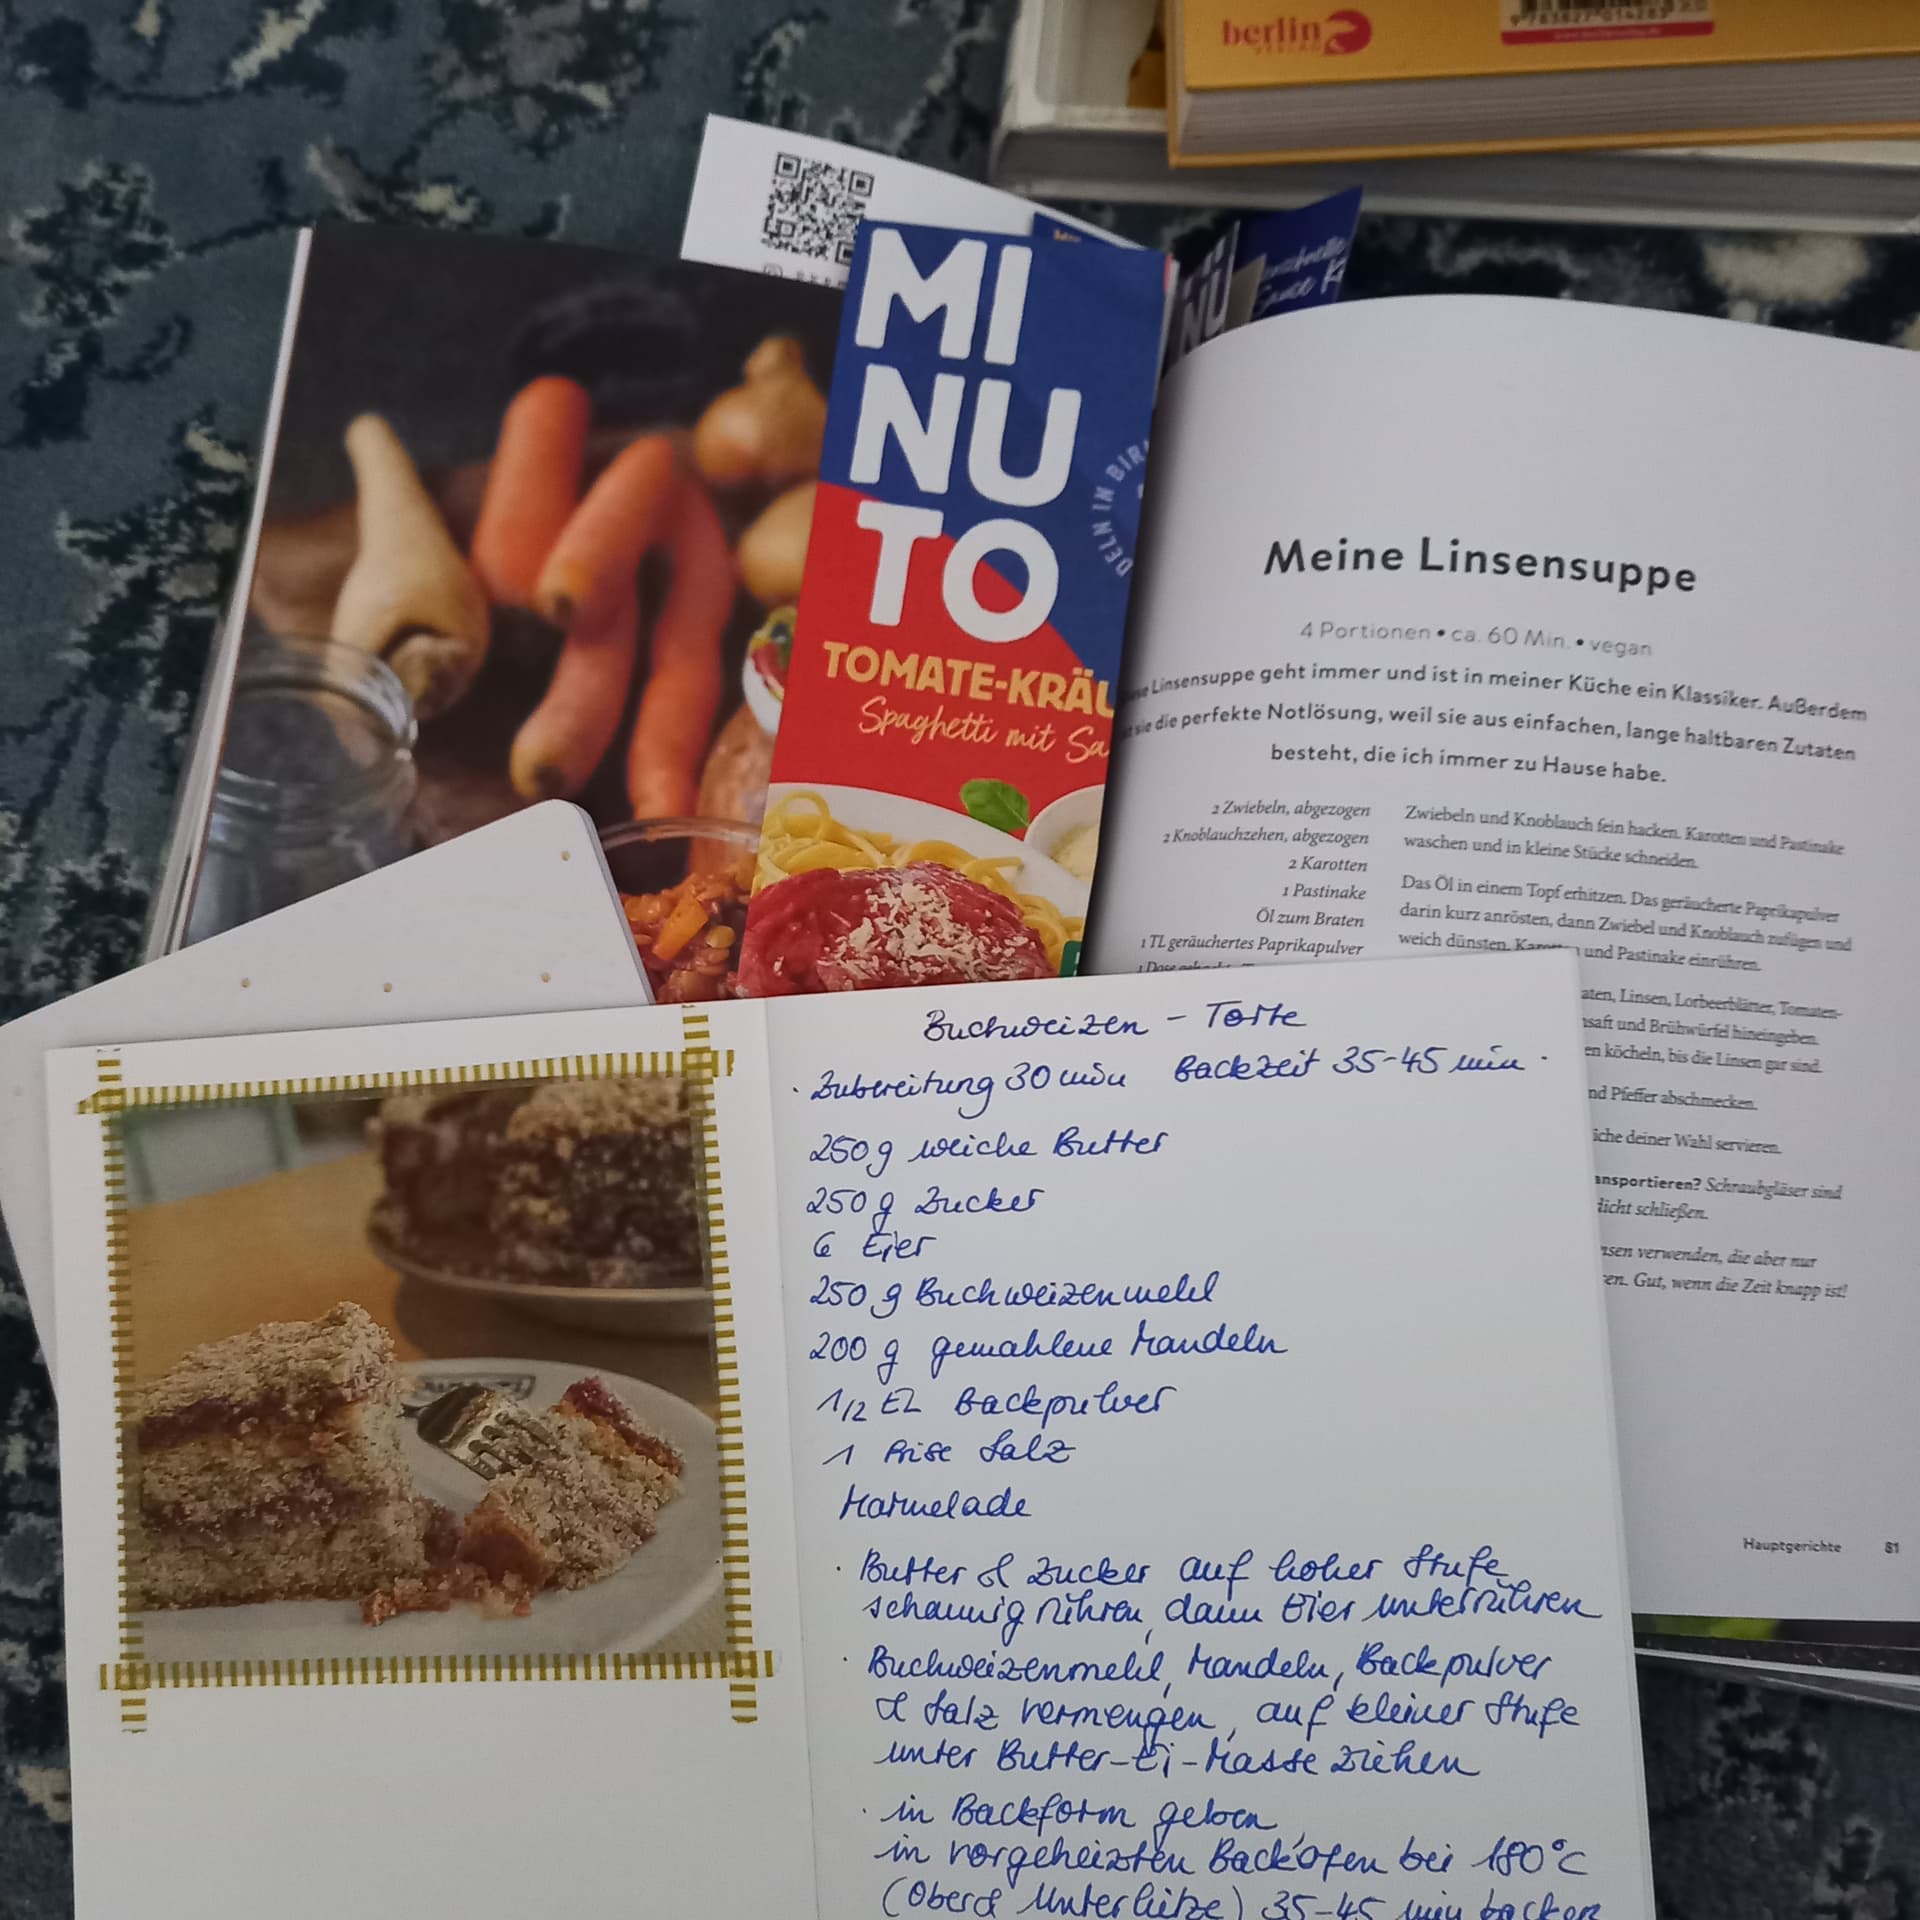 berlin
VERLAG
MI
NU
TO
DELN IN BIR
TOMATE-KRÄU
Spaghetti mit Sa
NÜ
Meine Linsensuppe
4 Portionen • ca. 60 Min. • vegan
Linsensuppe geht immer und ist in meiner Küche ein Klassiker. Außerdem
sie die perfekte Notlösung, weil sie aus einfachen, lange haltbaren Zutaten
besteht, die ich immer zu Hause habe.
2 Zwiebeln, abgezogen
2 Knoblauchzehen, abgezogen
2 Karotten
1 Pastinake
Öl zum Braten
1 TL geräuchertes Paprikapulver
Zwiebeln und Knoblauch fein hacken. Karotten und Pastinake
waschen und in kleine Stücke schneiden.
Das Öl in einem Topf erhitzen. Das geräucherte Paprikapulver
darin kurz anrösten, dann Zwiebel und Knoblauch zufügen und
weich dünsten. und Pastinake einrühren.
aten, Linsen, Lorbeerblätter, Tomaten-
saft und Brühwürfel hineingeben.
en köcheln, bis die Linsen gar sind.
nd Pfeffer abschmecken.
iche deiner Wahl servieren.
ansportieren? Schraubgläser sind
dicht schließen.
nsen verwenden, die aber nur
en. Gut, wenn die Zeit knapp ist!
Hauptgerichte 81
Buchweizen - Torte
· Zubereitung 30 min Backzeit 35-45 min ·
250 g weiche Butter
250 g Zucker
6 Eier
250 g Buchweizenmehl
200 g gemahlene Mandeln
1/2 EL Backpulver
1 Prise Salz
Marmelade
· Butter & Zucker auf hoher Stufe
schaumig rühren, dann Eier unterrühren
· Buchweizenmehl, Mandeln, Backpulver
& Salz vermengen, auf kleiner Stufe
unter Butter-Ei-Masse ziehen
· in Backform geben
in vorgeheizten Backofen bei 180°C
(Ober & Unterhitze) 35-45 min backen